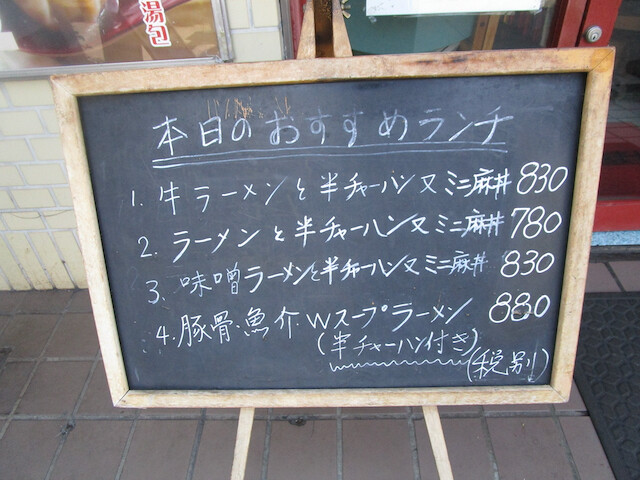 湯包
本日のおすすめランチ
1. 牛ラーメンと半チャーハン又ミニ麻丼 830
2. ラーメンと半チャーハン又ミニ麻丼 780
3. 味噌ラーメンと半チャーハン又ミニ麻丼 830
4. 豚骨・魚介Wスープラーメン 880
(半チャーハン付き)
(税別)